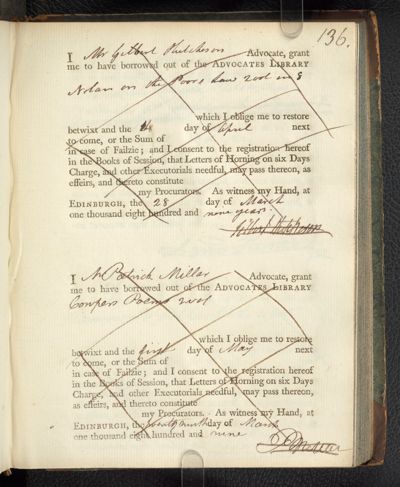 136.
I Mr Gilbert Hutcheson Advocate, grant
me to have borrowed out of the ADVOCATES LIBRARY
Nolan on the Poors Law 2 vol in 8
which I oblige me to restore
betwixt and the day of April next
to come, or the Sum of
in case of Failzie; and I consent to the registration hereof
in the Books of Session, that Letters of Horning on six Days
Charge, and other Executorials needful, may pass thereon, as
effeirs, and thereto constitute
my Procurators. As witness my Hand, at
EDINBURGH, the 28 day of March
one thousand eight hundred and nine years
Gilbert Hutcheson
I Mr Patrick Miller Advocate, grant
me to have borrowed out of the ADVOCATES LIBRARY
Cowpers Poems 2 vol
which I oblige me to restore
betwixt and the first day of May next
to come, or the Sum of
in case of Failzie; and I consent to the registration hereof
in the Books of Session, that Letters of Horning on six Days
Charge, and other Executorials needful, may pass thereon,
as effeirs, and thereto constitute
my Procurators. As witness my Hand, at
EDINBURGH, the twenty ninth day of March
one thousand eight hundred and nine